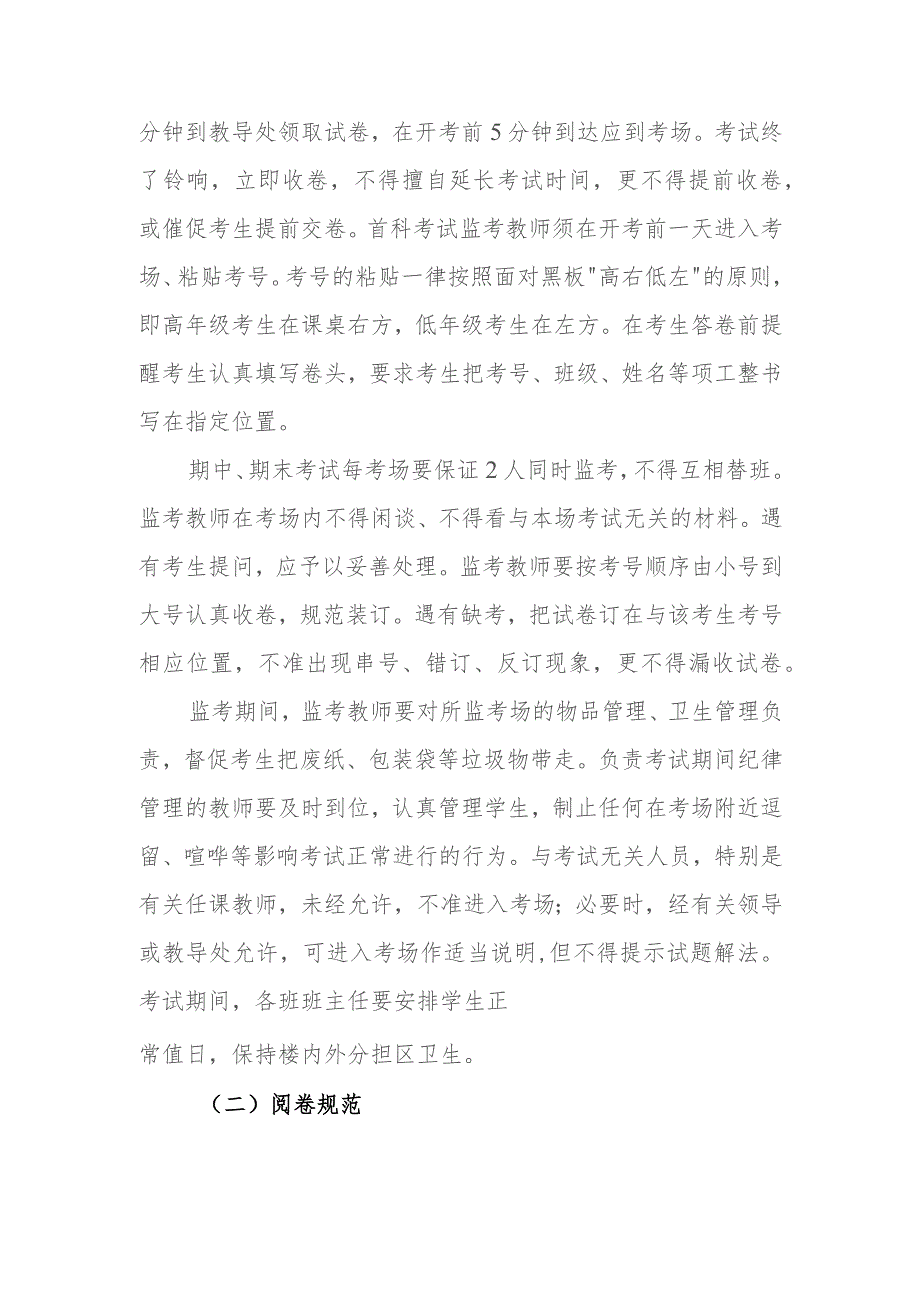 分钟到教导处领取试卷，在开考前5分钟到达应到考场。考试终
了铃响，立即收卷，不得擅自延长考试时间，更不得提前收卷，
或催促考生提前交卷。首科考试监考教师须在开考前一天进入考
场、粘贴考号。考号的粘贴一律按照面对黑板"高右低左"的原则，
即高年级考生在课桌右方，低年级考生在左方。在考生答卷前提
醒考生认真填写卷头，要求考生把考号、班级、姓名等项工整书
写在指定位置。
期中、期末考试每考场要保证2人同时监考，不得互相替班。
监考教师在考场内不得闲谈、不得看与本场考试无关的材料。遇
有考生提问，应予以妥善处理。监考教师要按考号顺序由小号到
大号认真收卷，规范装订。遇有缺考，把试卷订在与该考生考号
相应位置，不准出现串号、错订、反订现象，更不得漏收试卷。
监考期间，监考教师要对所监考场的物品管理、卫生管理负
责，督促考生把废纸、包装袋等垃圾物带走。负责考试期间纪律
管理的教师要及时到位，认真管理学生，制止任何在考场附近逗
留、喧哗等影响考试正常进行的行为。与考试无关人员，特别是
有关任课教师，未经允许，不准进入考场；必要时，经有关领导
或教导处允许，可进入考场作适当说明,但不得提示试题解法。
考试期间，各班班主任要安排学生正
常值日，保持楼内外分担区卫生。
（二）阅卷规范